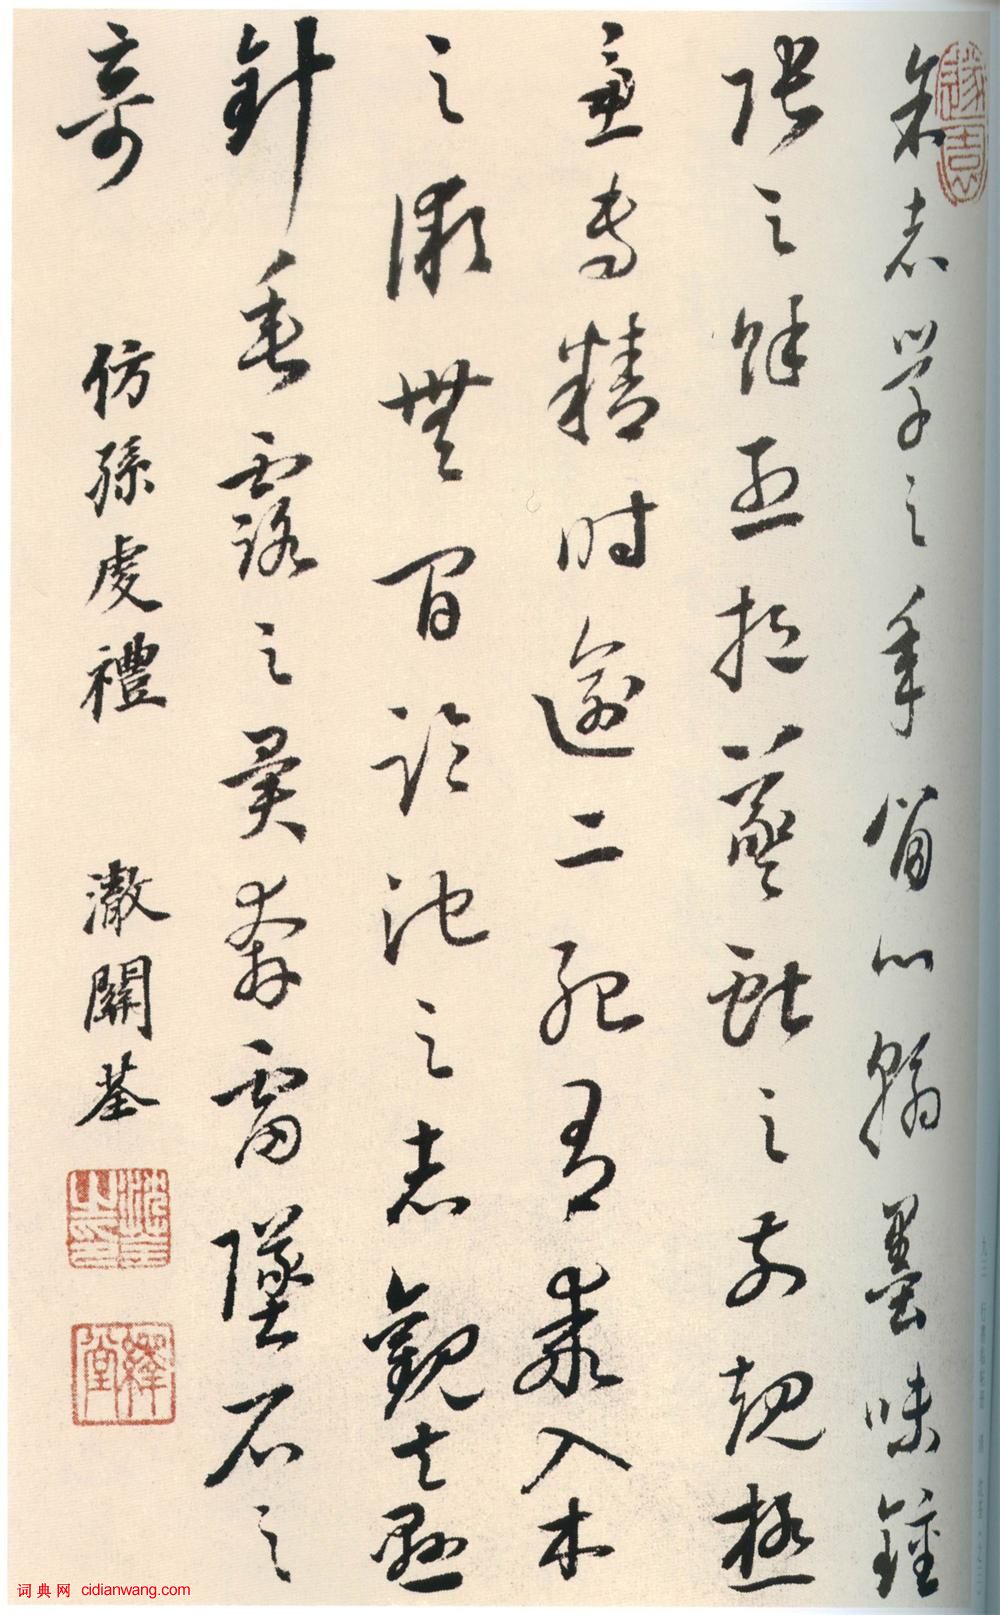 余志學之年留心翰墨味鍾
張之餘烈挹羲獻之前規極
慮專精時逾二紀有乖入木
之術無間臨池之志觀夫懸
針垂露之異奔雷墜石之
奇
仿孫虔禮
荃
沈荃之印
繹堂
词典网 cidianwang.com